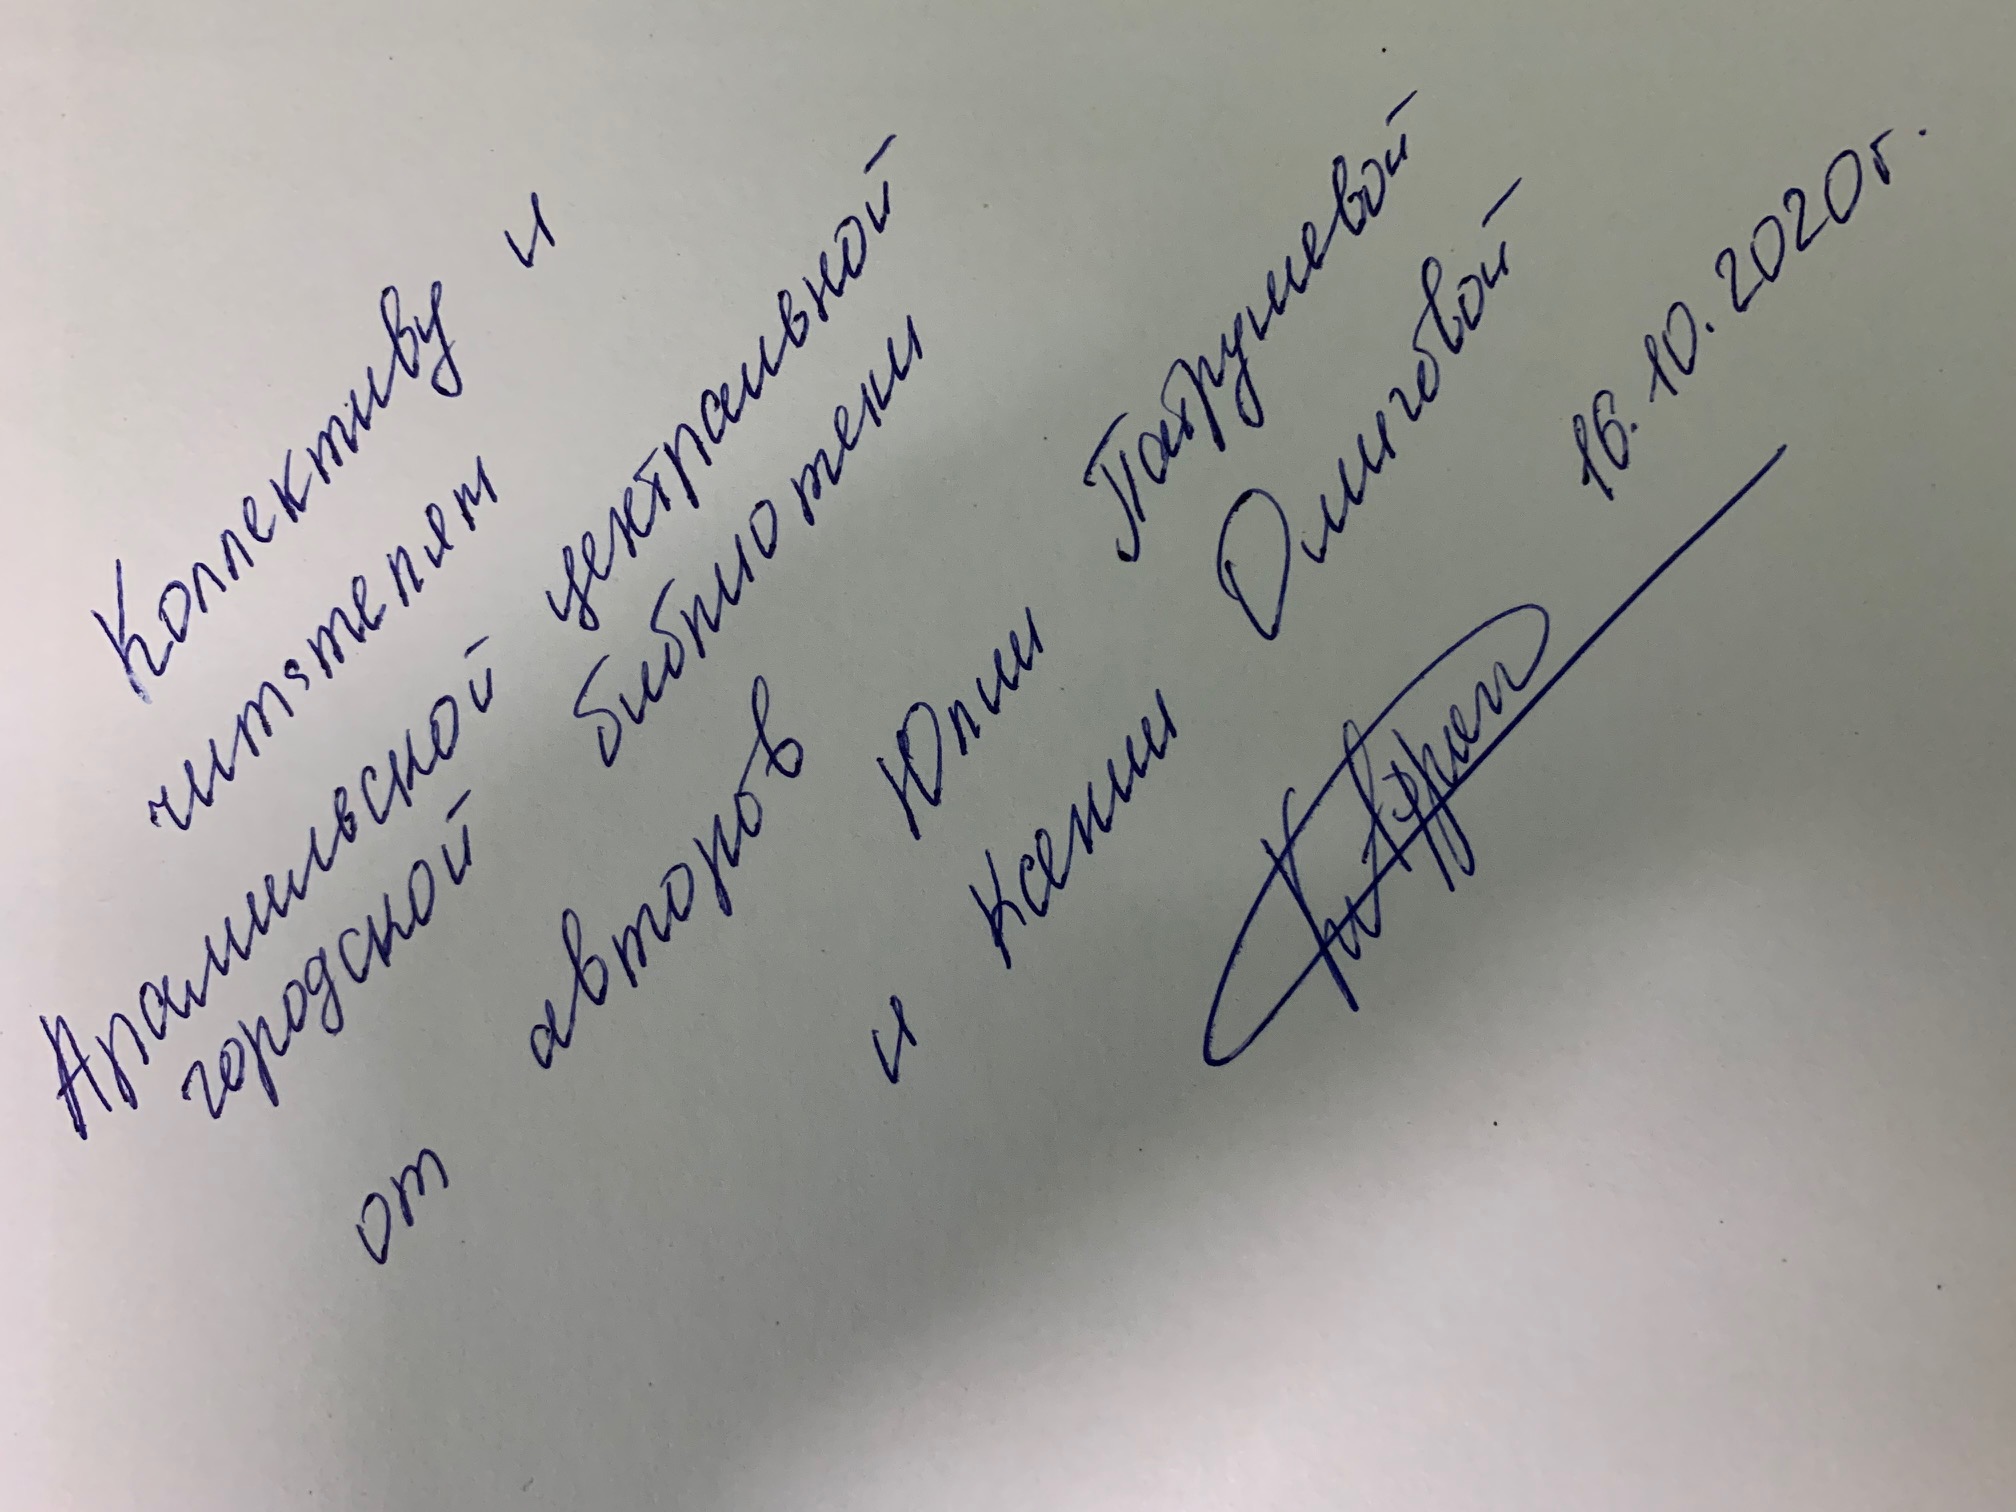 Коллективу и
читателям
Арамильской центральной
городской библиотеки
от авторов Юлии Патрушевой
и Ксении Олиговой
16.10.2020г.